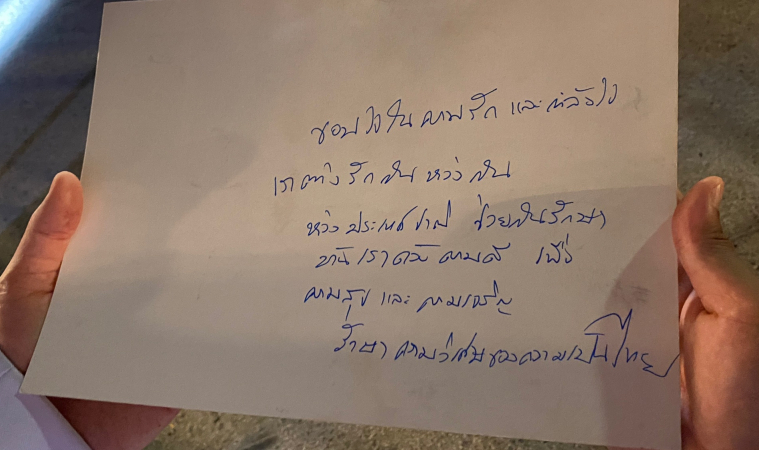 ขอบใจในความรัก และกำลังใจ
เราต่างรักกัน ห่วงกัน
ห่วงประเทศชาติ ช่วยกันรักษา
เราความดี เพื่อ
ความสุข และ ความเจริญ
รักษา ความวิเศษของความเป็นไทย